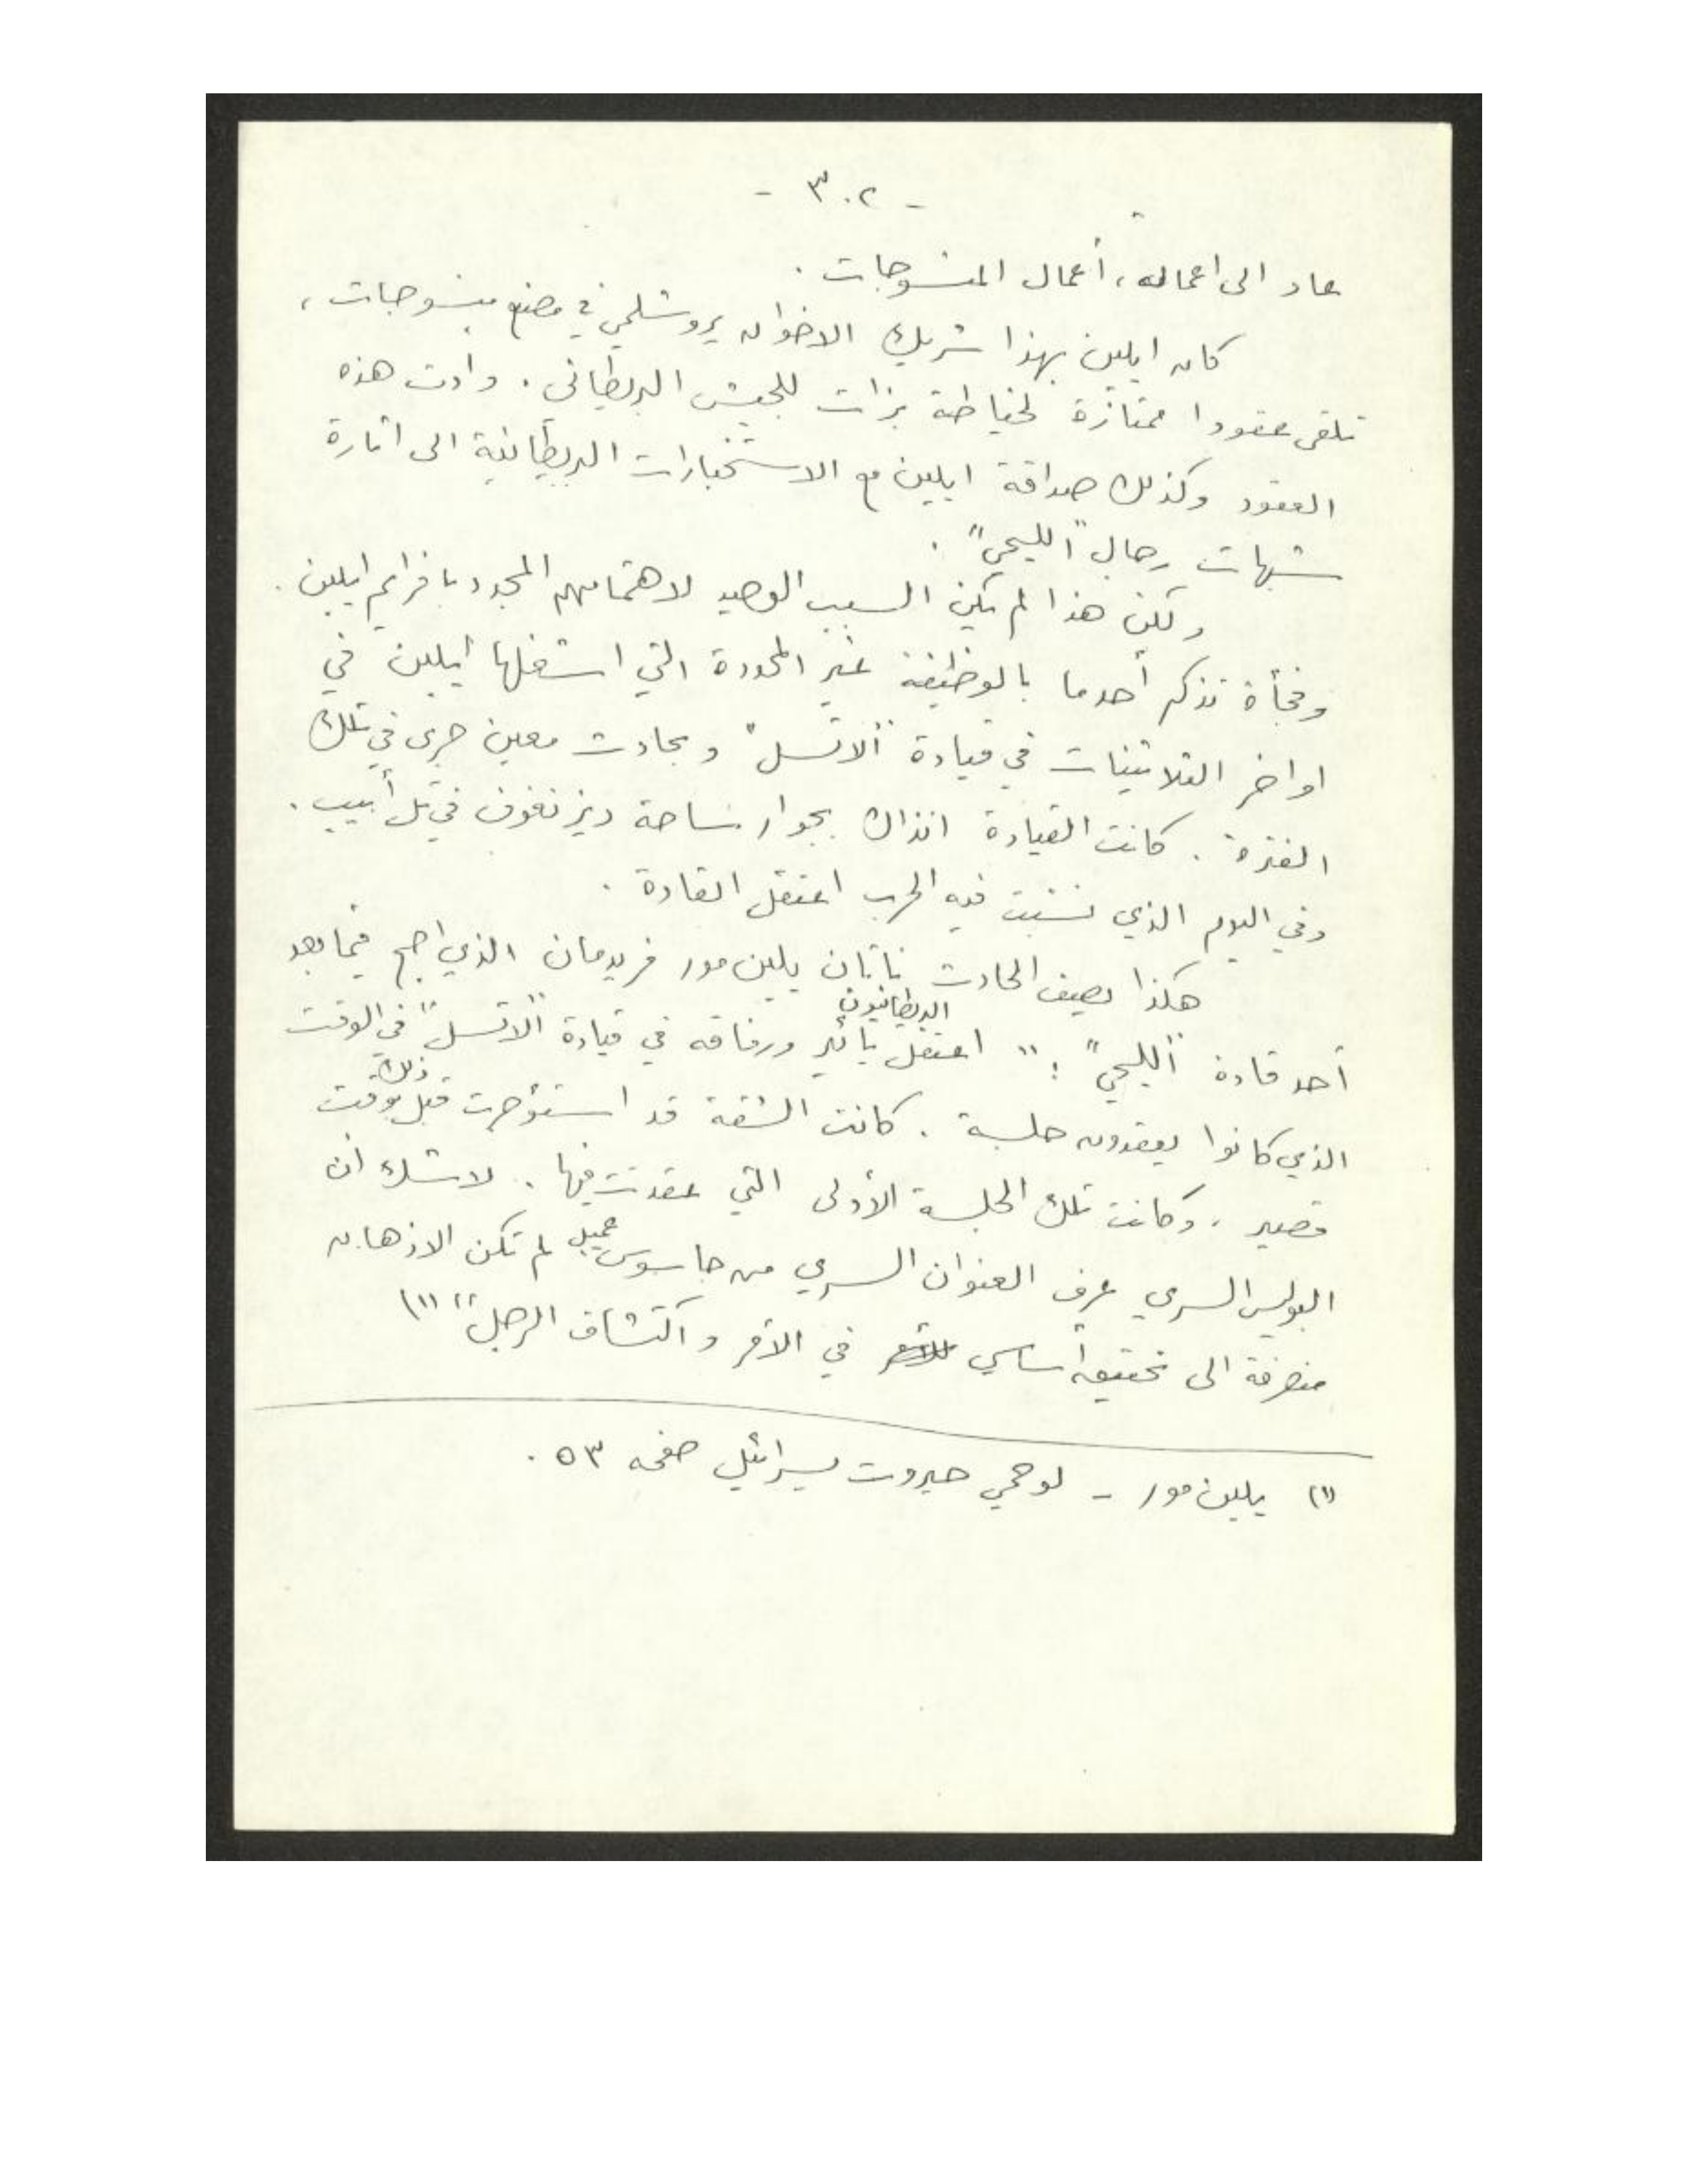 - ٣٠٢ -
عاد الى اعماله، أعمال المنسوجات.
كان ايلين بهذا شريك الاخوان يروشلمي في مصنع منسوجات،
تلقى عقودا ممتازة لخياطة بزات للجيش البريطاني. وادت هذه
العقود وكذلك صداقة ايلين مع الاستخبارات البريطانية الى اثارة
شبهات رجال "الليحي".
ولكن هذا لم يكن السبب الوحيد لاهتمامهم المجدد بافرايم ايلين.
وفجأة تذكر أحدما بالوظيفة غير المحددة التي اشغلها ايلين في
اواخر الثلاثينات في قيادة "الاتسل" وبحادث معين جرى في تلك
الفترة. كانت القيادة انذاك بجوار ساحة ديزنغوف في تل أبيب.
وفي اليوم الذي نشبت فيه الحرب اعتقل القادة.
هكذا يصف الحادث ناتان يلين مور فريدمان الذي اصبح فيما بعد
البريطانيون
أحد قادة "الليحي": "اعتقل يائير ورفاقه في قيادة "الاتسل" في الوقت
ذلك
الذي كانوا يعقدون جلسة. كانت الشقة قد استؤجرت قبل بوقت
قصير، وكانت تلك الجلسة الأولى التي عقدت فيها. لا شك ان
عميل
البوليس السري عرف العنوان السري من جاسوس لم تكن الاذهان
منصرفة الى تحقيق أساسي في الأمر واكتشاف الرجل" (١)
(١) يلين مور - لوحمي حيروت يسرائيل صفحه ٥٣.